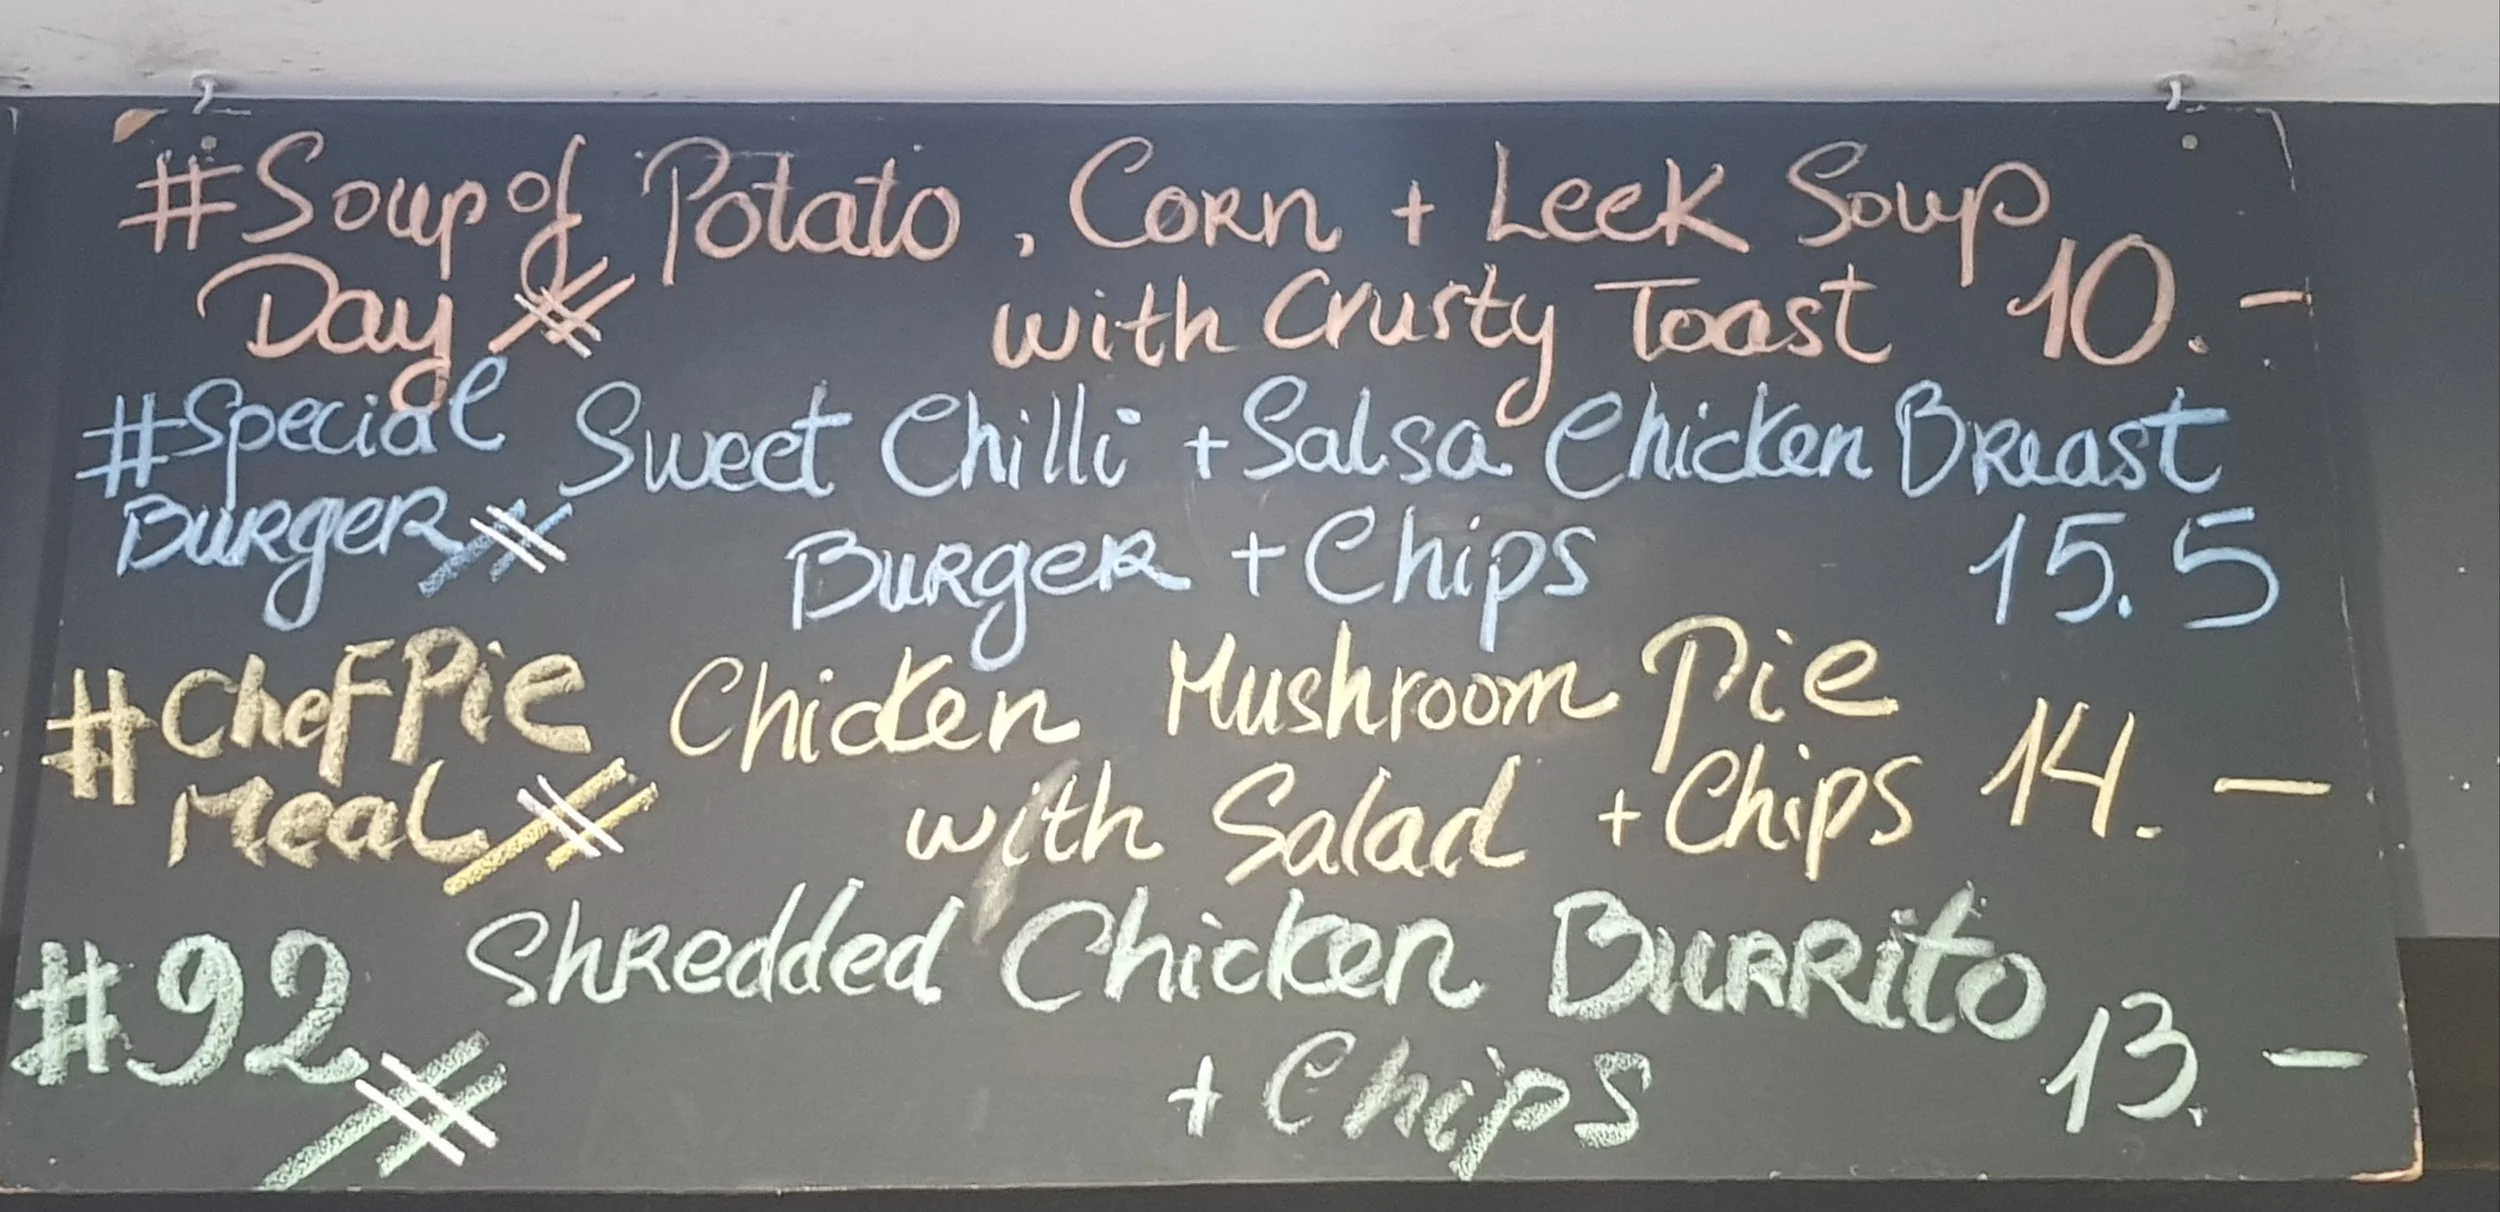 #Soup of Potato, Corn + Leek Soup
Day with Crusty Toast 10.-
#Special Sweet Chilli + Salsa Chicken Breast
Burger Burger + Chips 15.5
#Chef Pie Chicken Mushroom Pie
Meal with Salad + Chips 14.-
#92 Shredded Chicken Burrito
+ Chips 13.-